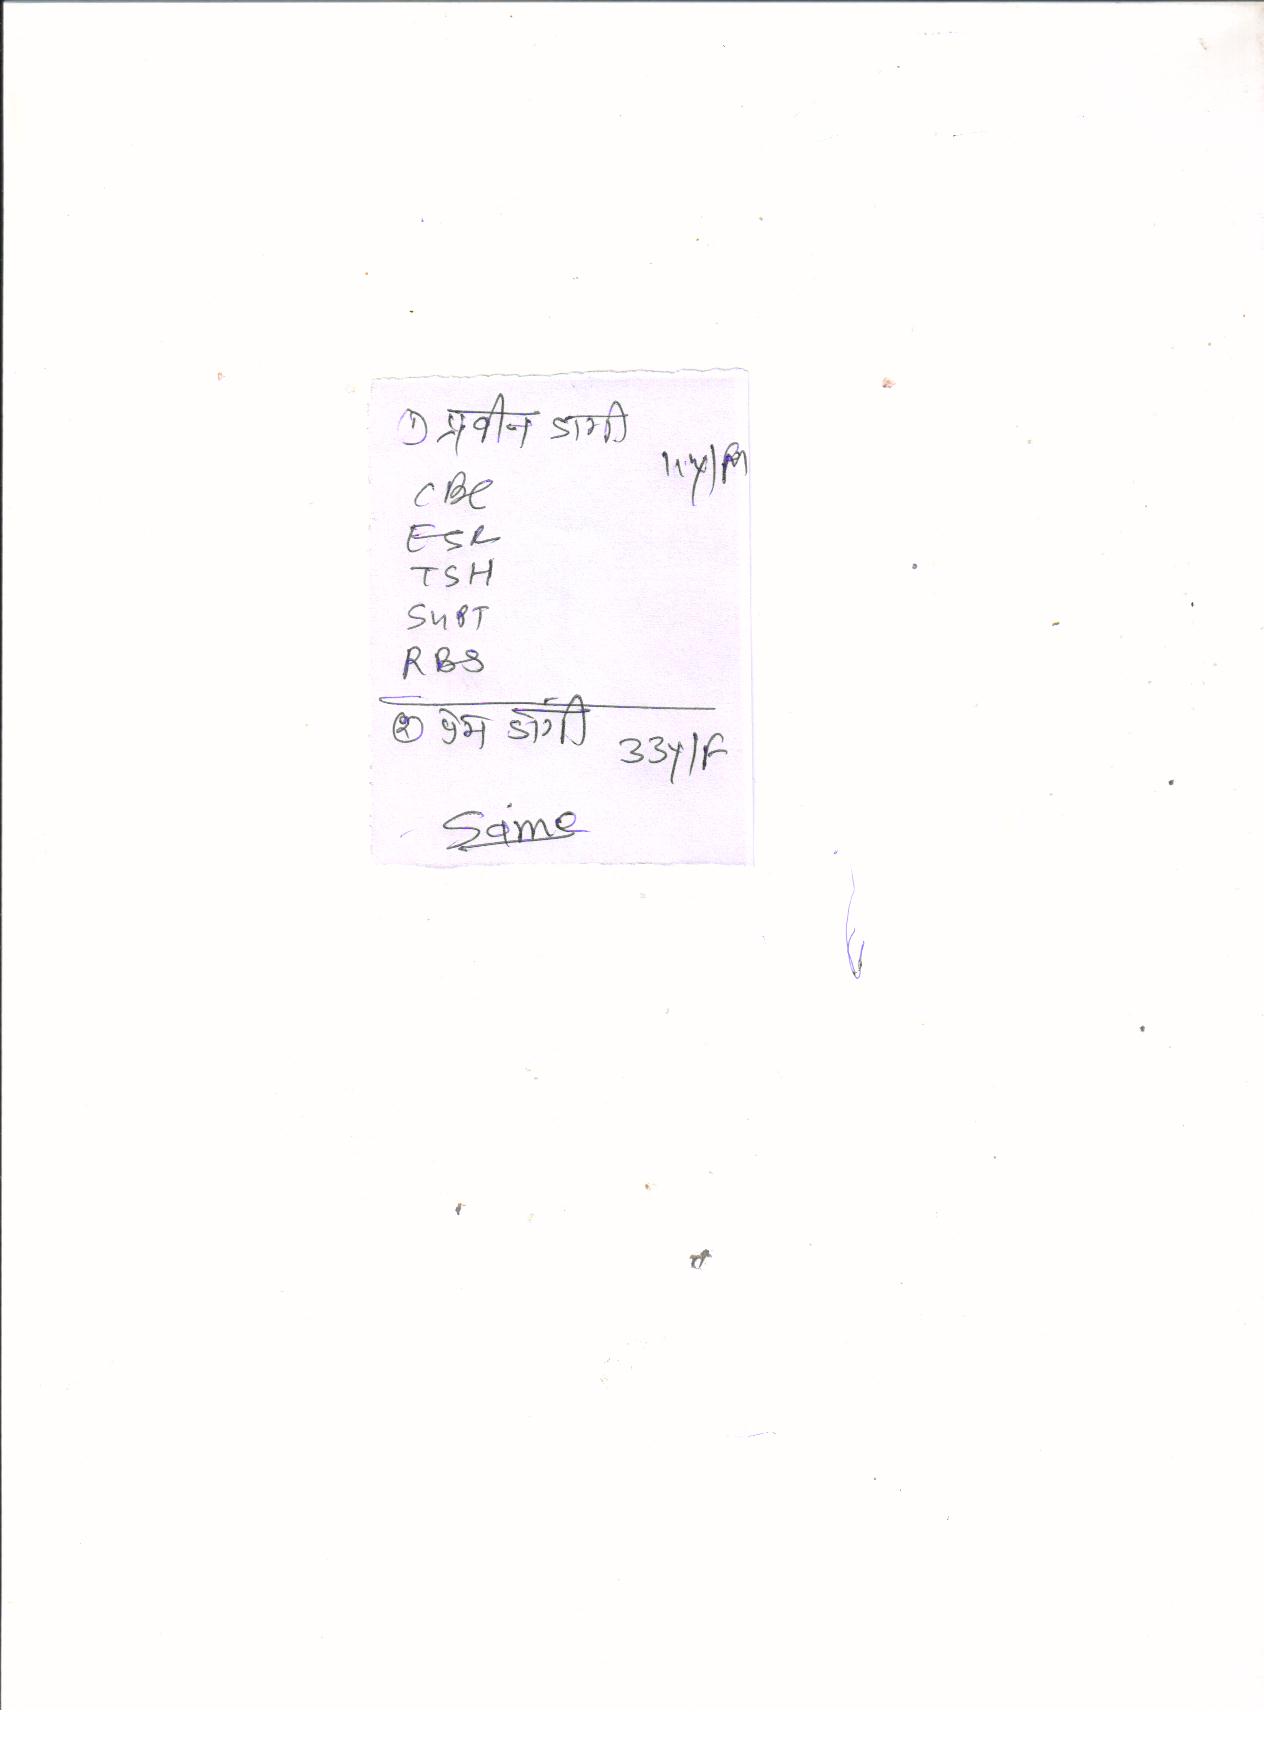 ① प्रवीन डागी
11y/M
CBC
ESR
TSH
SHPT
RBS
② प्रेम डांगी 33y/F
Same